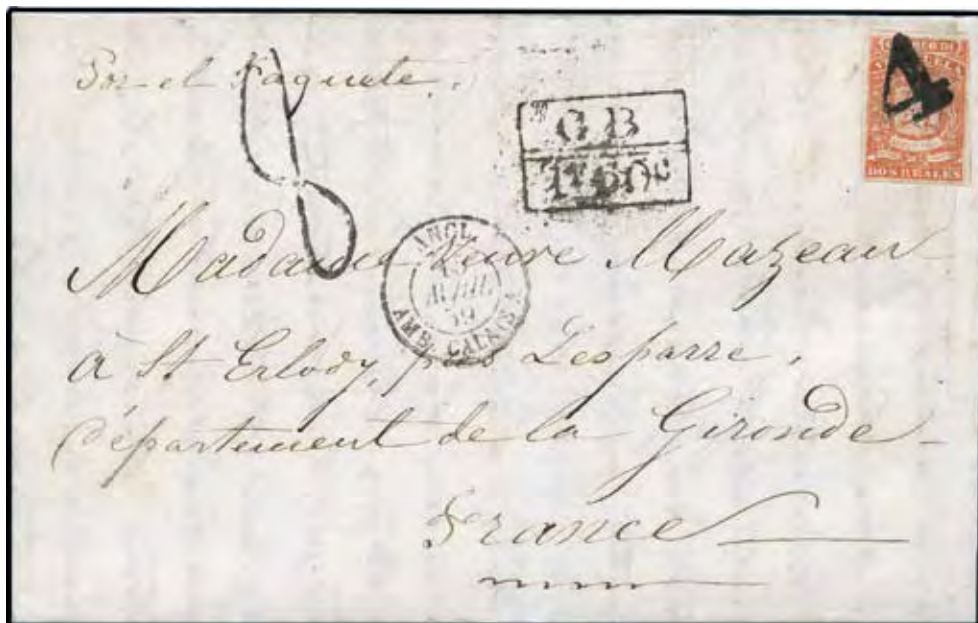 Por el Paquete.
8
GB
1F60c
CORREO DE
VENEZUELA
DOS REALES
4
ANGL.
AVRIL
59
AMB. CALAIS A
Madame Veuve Mazeau
à St près Lesparre,
Département de la Gironde
France